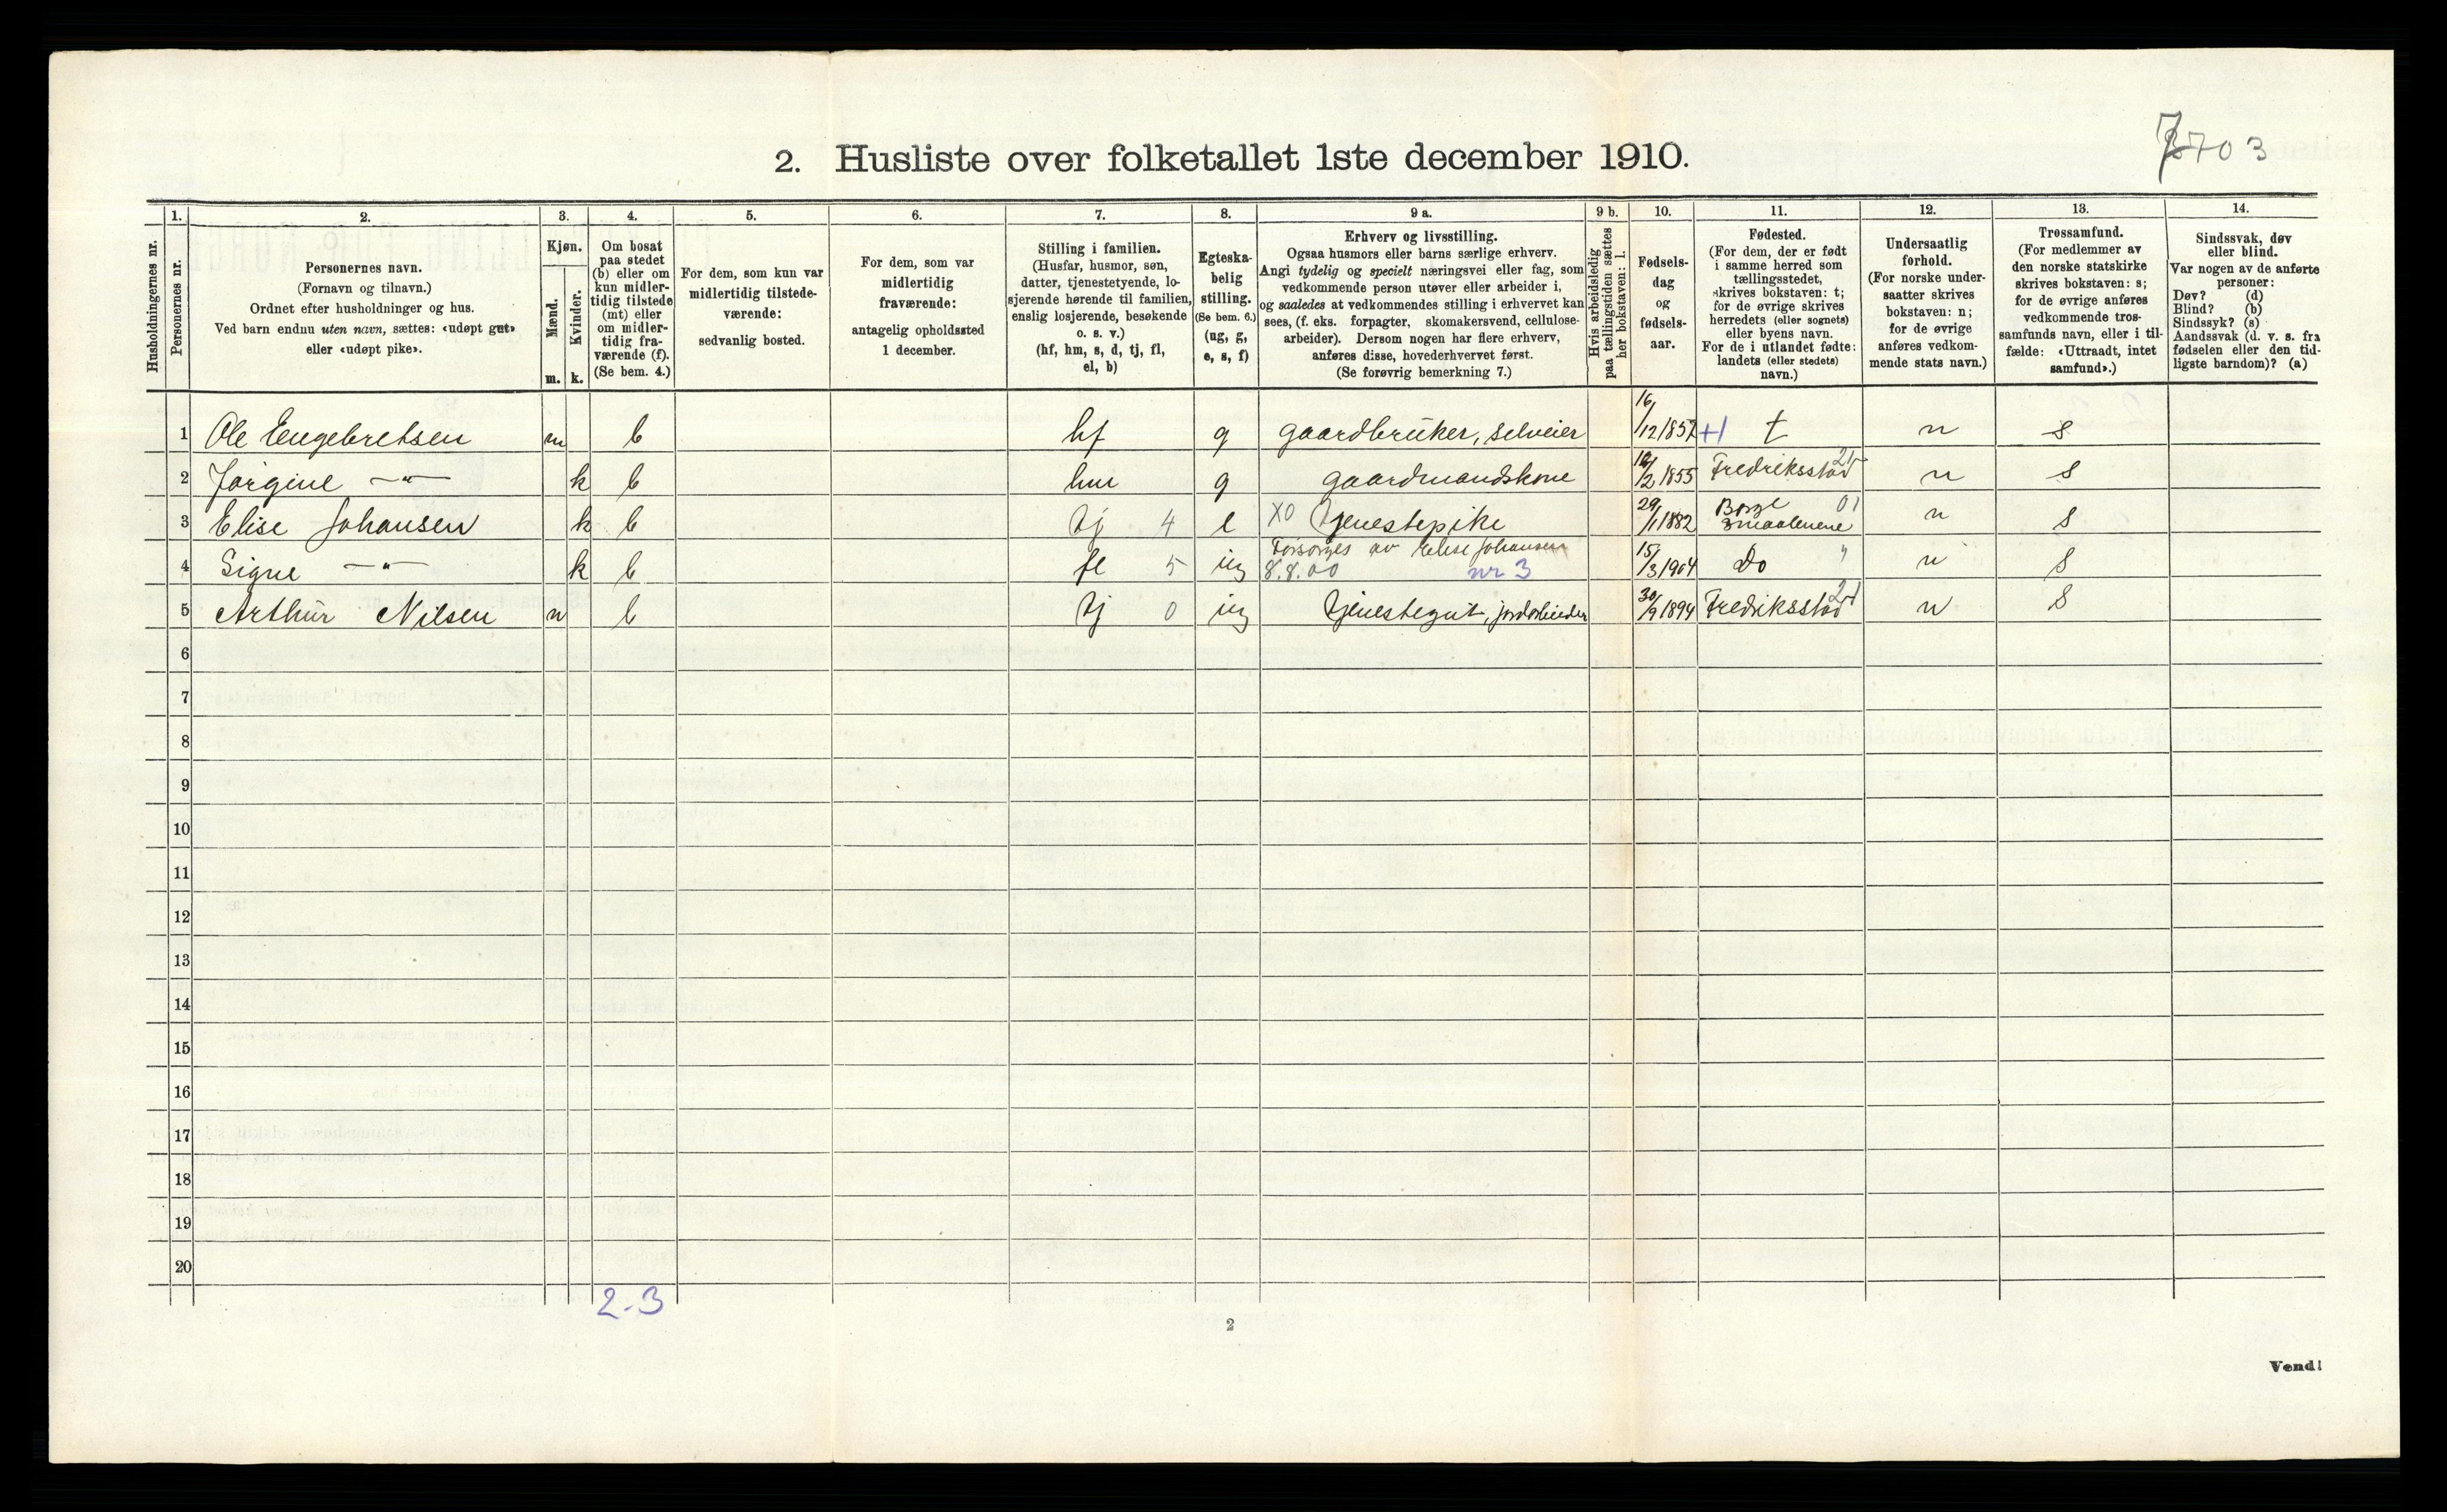 703
2. Husliste over folketallet 1ste december 1910.
Husholdningernes nr.
1.
Personernes nr.
2.
Personernes navn.
(Fornavn og tilnavn.)
Ordnet efter husholdninger og hus.
Ved barn endnu uten navn, sættes: «udøpt gut»
eller «udøpt pike».
3.
Kjøn.
Mænd.
Kvinder.
m. k.
4.
Om bosat
paa stedet
(b) eller om
kun midler-
tidig tilstede
(mt) eller
om midler-
tidig fra-
værende (f).
(Se bem. 4.)
5.
For dem, som kun var
midlertidig tilstede-
værende:
sedvanlig bosted.
6.
For dem, som var
midlertidig
fraværende:
antagelig opholdssted
1 december.
7.
Stilling i familien.
(Husfar, husmor, søn,
datter, tjenestetyende, lo-
sjerende hørende til familien,
enslig losjerende, besøkende
o. s. v.)
(hf, hm, s, d, tj, fl,
el, b)
8.
Egteska-
belig
stilling.
(Se bem. 6.)
(ug, g,
e, s, f)
9 a.
Erhverv og livsstilling.
Ogsaa husmors eller barns særlige erhverv.
Angi tydelig og specielt næringsvei eller fag, som
vedkommende person utøver eller arbeider i,
og saaledes at vedkommendes stilling i erhvervet kan
sees, (f. eks. forpagter, skomakersvend, cellulose-
arbeider). Dersom nogen har flere erhverv,
anføres disse, hovederhvervet først.
(Se forøvrig bemerkning 7.)
9 b.
Hvis arbeidsledig
paa tællingstiden sættes
her bokstaven: l.
10.
Fødsels-
dag
og
fødsels-
aar.
11.
Fødested.
(For dem, der er født
i samme herred som
tællingsstedet,
skrives bokstaven: t;
for de øvrige skrives
herredets (eller sognets)
eller byens navn.
For de i utlandet fødte:
landets (eller stedets)
navn.)
12.
Undersaatlig
forhold.
(For norske under-
saatter skrives
bokstaven: n;
for de øvrige
anføres vedkom-
mende stats navn.)
13.
Trossamfund.
(For medlemmer av
den norske statskirke
skrives bokstaven: s;
for de øvrige anføres
vedkommende tros-
samfunds navn, eller i til-
fælde: «Uttraadt, intet
samfund».)
14.
Sindssvak, døv
eller blind.
Var nogen av de anførte
personer:
Døv? (d)
Blind? (b)
Sindssyk? (s)
Aandssvak (d. v. s. fra
fødselen eller den tid-
ligste barndom)? (a)
1 Ole Engebretsen m b hf g gaardbruker, selveier 16/12 1857 t n s
2 Jørgine —"— k b hm g gaardmandskone /2 1855 Fredriksstad 21 n s
3 Elise Johansen k b tj 4 e X0 tjenestepike 29/1 1882 Borge 01 Smaalenene n s
4 Signe —"— k b fl 5 ug Forsørges av Elise Johansen 8.8.00 nr 3 15/3 1904 Do " n s
5 Arthur Nilsen m b tj 0 ug tjenestegut, jordarbeider 30/9 1894 Fredriksstad 21 n s
6
7
8
9
10
11
12
13
14
15
16
17
18
19
20
2-3
2
Vend!